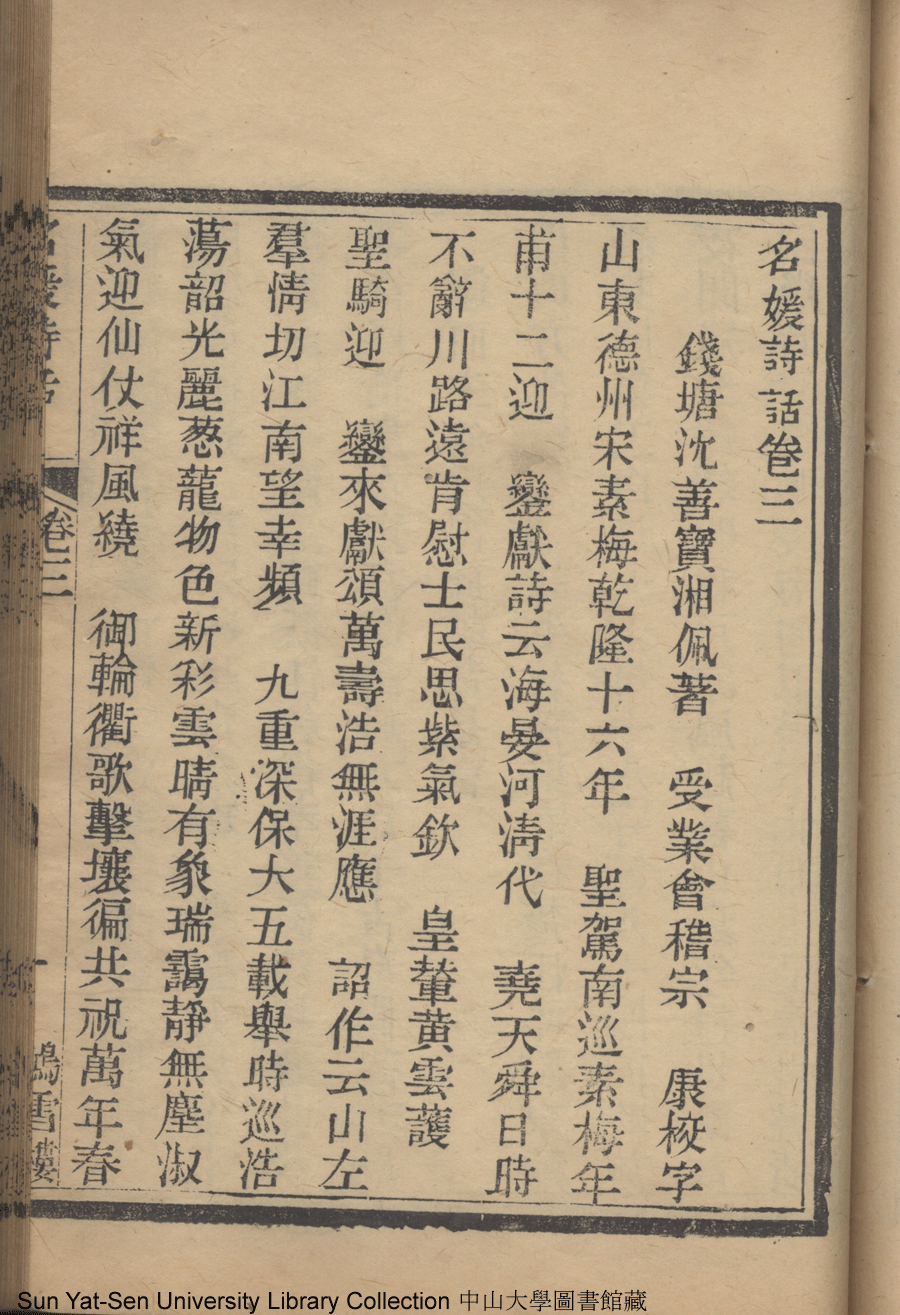 名媛詩話卷三
錢塘沈善寶湘佩著　受業會稽宗　康校字
山東德州宋素梅乾隆十六年　聖駕南巡素梅年
甫十二迎　鑾獻詩云海晏河淸代　堯天舜日時
不辭川路遠肯慰士民思紫氣欽　皇輦黃雲護
聖騎迎　鑾來獻頌萬壽浩無涯應　詔作云山左
羣情切江南望幸頻　九重深保大五載舉時巡浩
蕩韶光麗葱蘢物色新彩雲晴有象瑞靄靜無塵淑
氣迎仙仗祥風繞　御輪衢歌擊壤徧共祝萬年春
名媛詩話　卷三　一　鴻雪樓
Sun Yat-Sen University Library Collection 中山大學圖書館藏